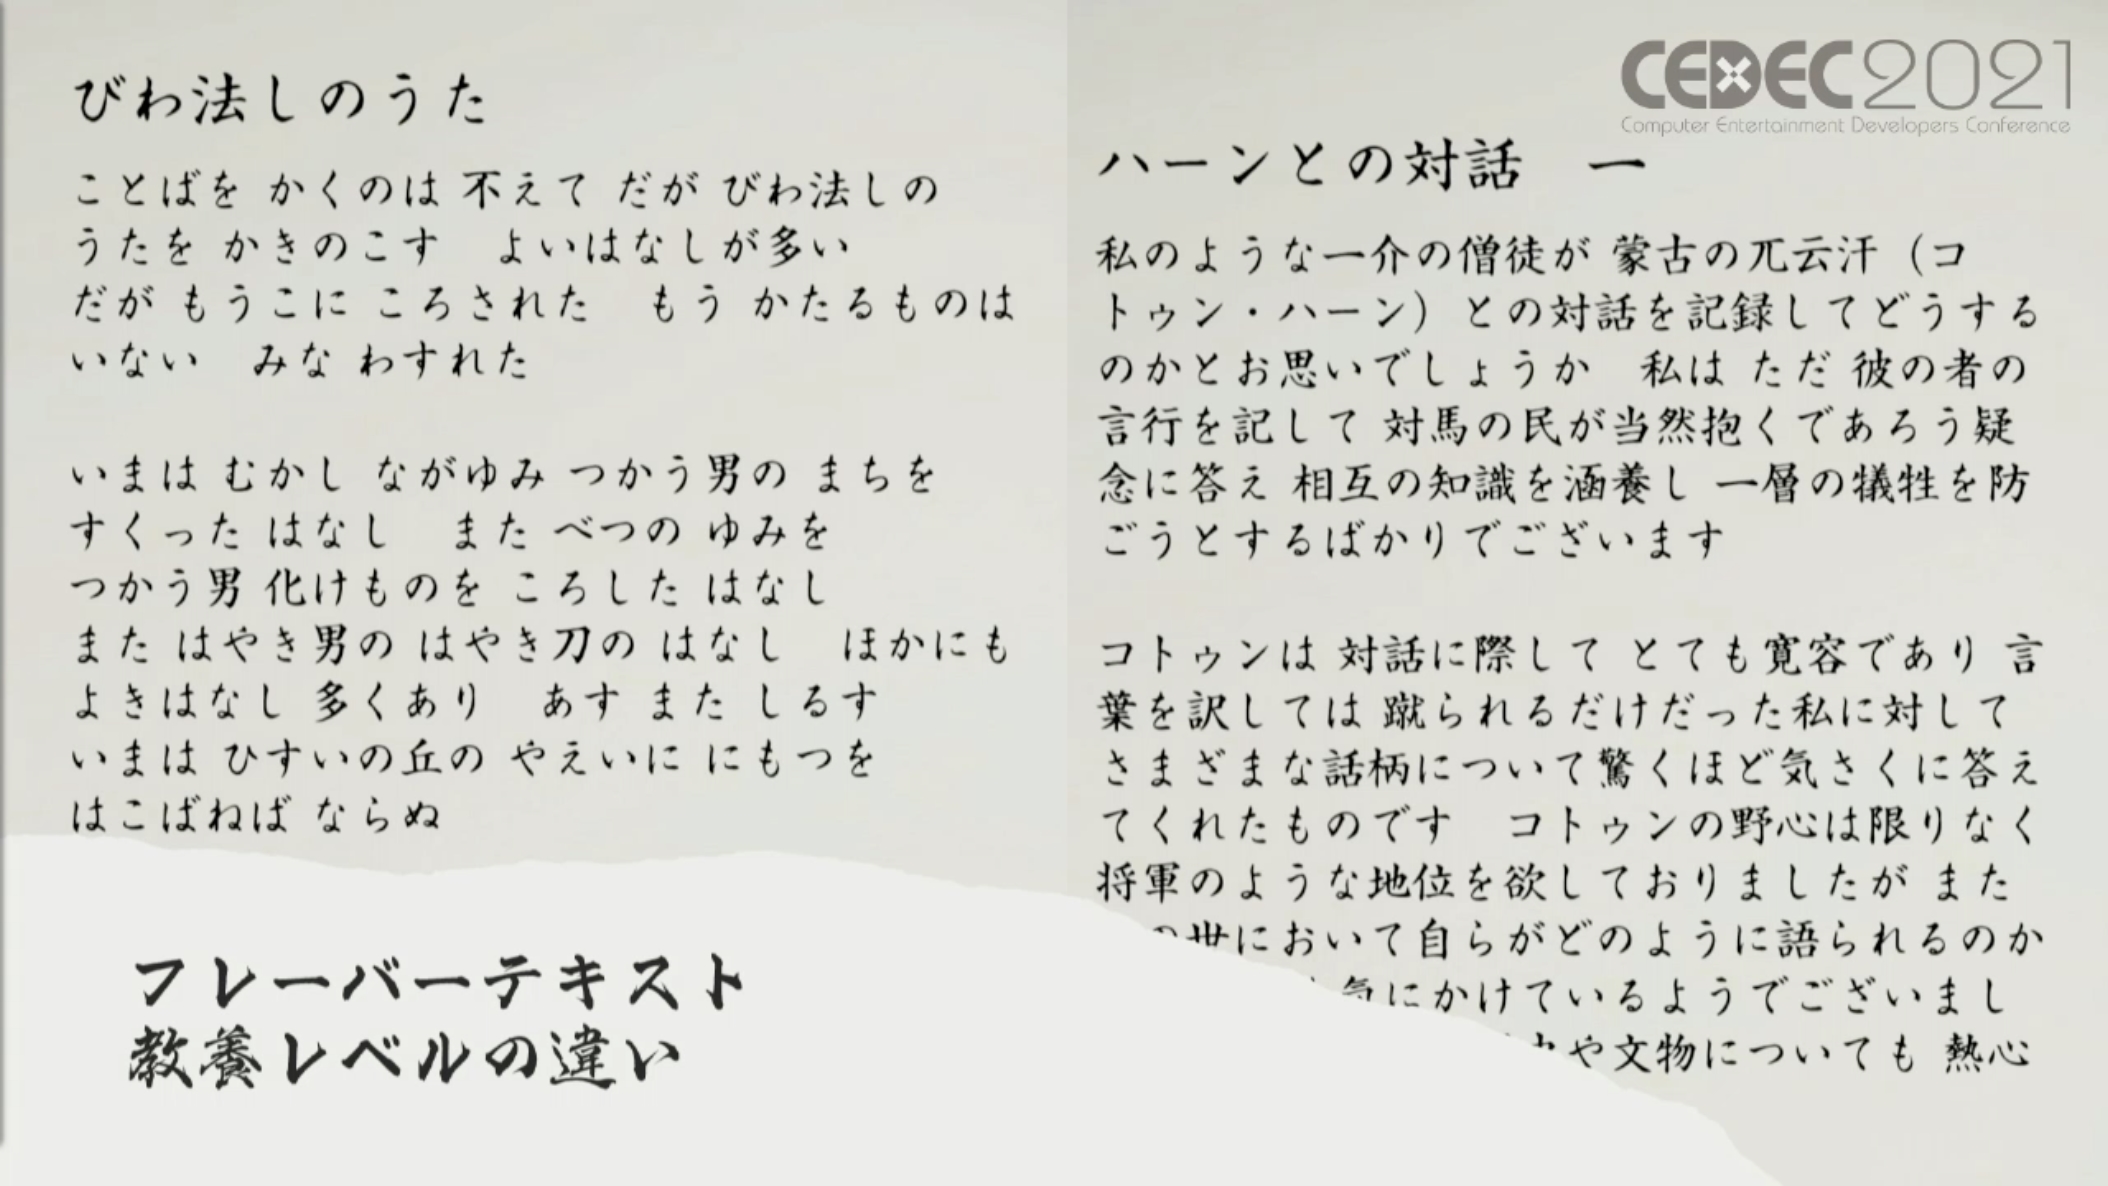 びわ法しのうた
ことばを かくのは 不えて だが びわ法しの
うたを かきのこす　よいはなしが多い
だが もうこに ころされた　もう かたるものは
いない　みな わすれた
いまは むかし ながゆみ つかう男の まちを
すくった はなし　また べつの ゆみを
つかう男 化けものを ころした はなし
また はやき男の はやき刀の はなし　ほかにも
よきはなし 多くあり　あす また しるす
いまは ひすいの丘の やえいに にもつを
はこばねば ならぬ
フレーバーテキスト
教養レベルの違い
CEDEC2021
Computer Entertainment Developers Conference
ハーンとの対話　一
私のような一介の僧徒が 蒙古の兀云汗（コ
トゥン・ハーン）との対話を記録してどうする
のかとお思いでしょうか　私は ただ 彼の者の
言行を記して 対馬の民が当然抱くであろう疑
念に答え 相互の知識を涵養し 一層の犠牲を防
ごうとするばかりでございます
コトゥンは 対話に際して とても寛容であり 言
葉を訳しては 蹴られるだけだった私に対して
さまざまな話柄について驚くほど気さくに答え
てくれたものです　コトゥンの野心は限りなく
将軍のような地位を欲しておりましたが また
の世において自らがどのように語られるのか
気にかけているようでございまし
や文物についても 熱心